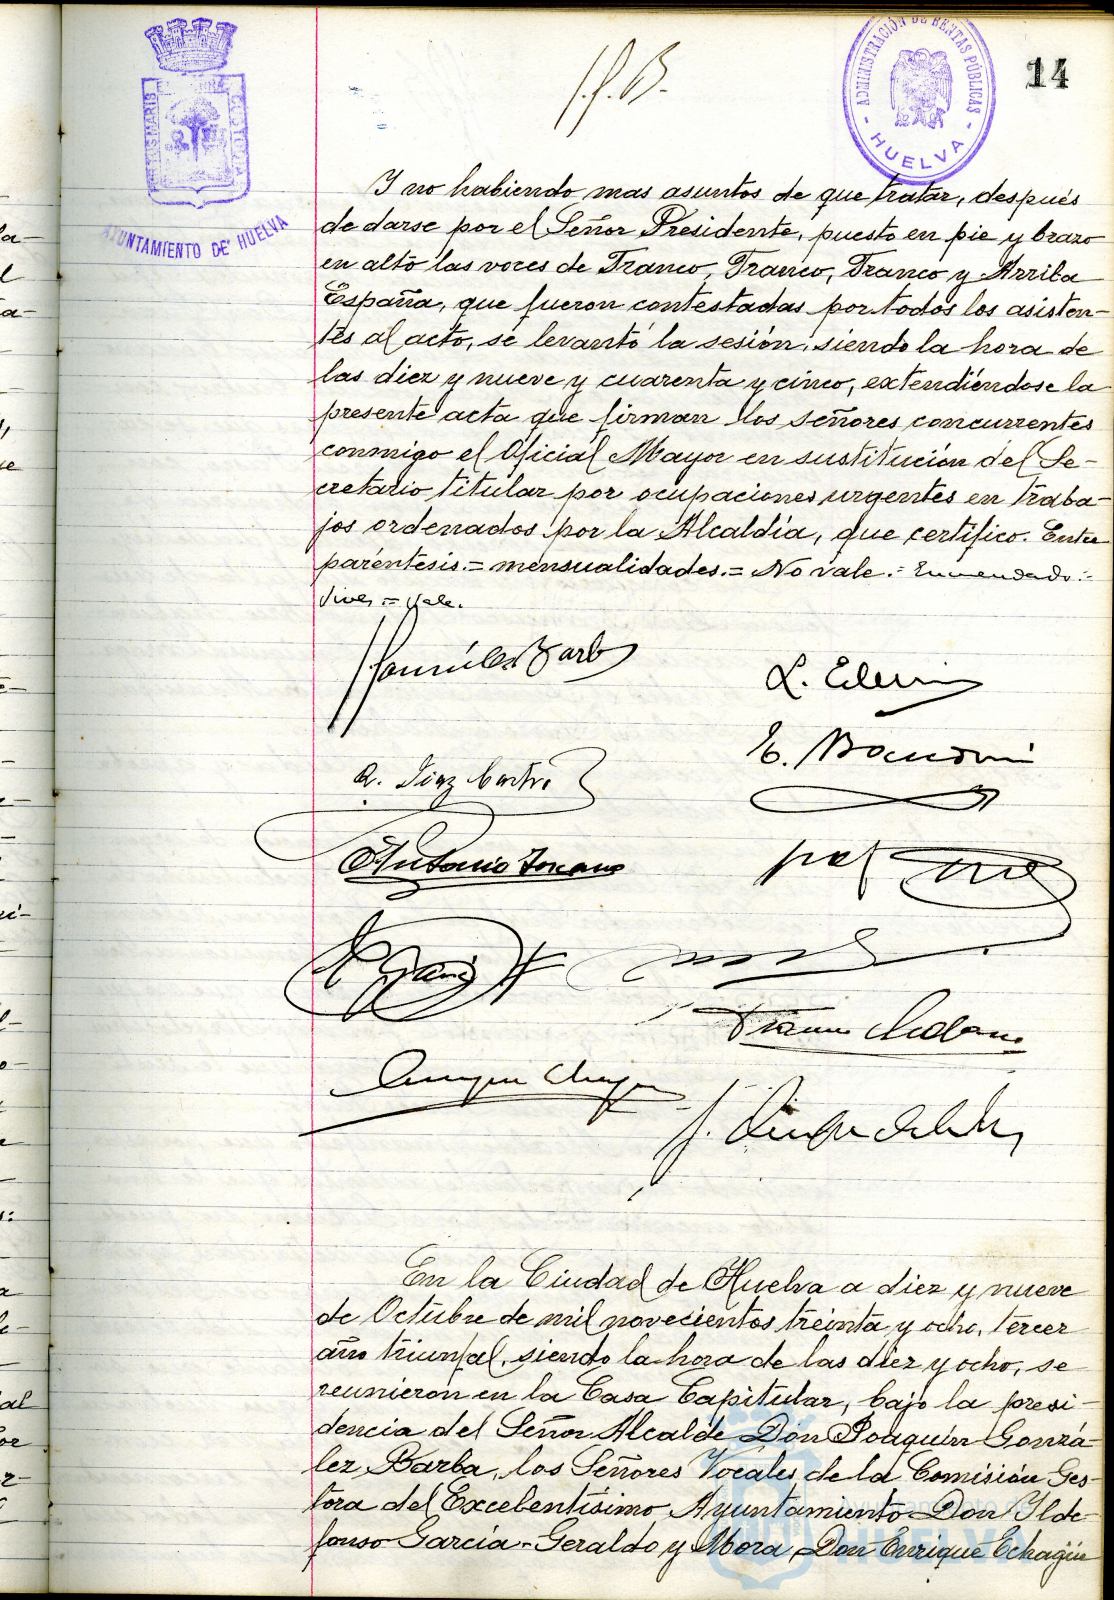 14
ADMINISTRACIÓN DE RENTAS PÚBLICAS
- HUELVA -
AYUNTAMIENTO DE HUELVA
Y no habiendo mas asuntos de que tratar, después
de darse por el Señor Presidente, puesto en pie y brazo
en alto las voces de Franco, Franco, Franco y Arriba
España, que fueron contestadas por todos los asisten-
tes al acto, se levantó la sesión, siendo la hora de
las diez y nueve y cuarenta y cinco, extendiéndose la
presente acta que firman los señores concurrentes
conmigo el Oficial Mayor en sustitución del Se-
cretario titular por ocupaciones urgentes en traba-
jos ordenados por la Alcaldía, que certifico. Entre
paréntesis.= mensualidades.= No vale.= Enmendado:-
= Vale.
González Barba
A. Diaz
Antonio
En la Ciudad de Huelva a diez y nueve
de Octubre de mil novecientos treinta y ocho, tercer
año triunfal, siendo la hora de las diez y ocho, se
reunieron en la Casa Capitular, bajo la presi-
dencia del Señor Alcalde Don Joaquín Gonzá-
lez Barba, los Señores Vocales de la Comisión Ges-
tora del Excelentísimo Ayuntamiento Don Ilde-
fonso García-Geraldo y Mora, Don Enrique Echagüe
Ayuntamiento de
HUELVA